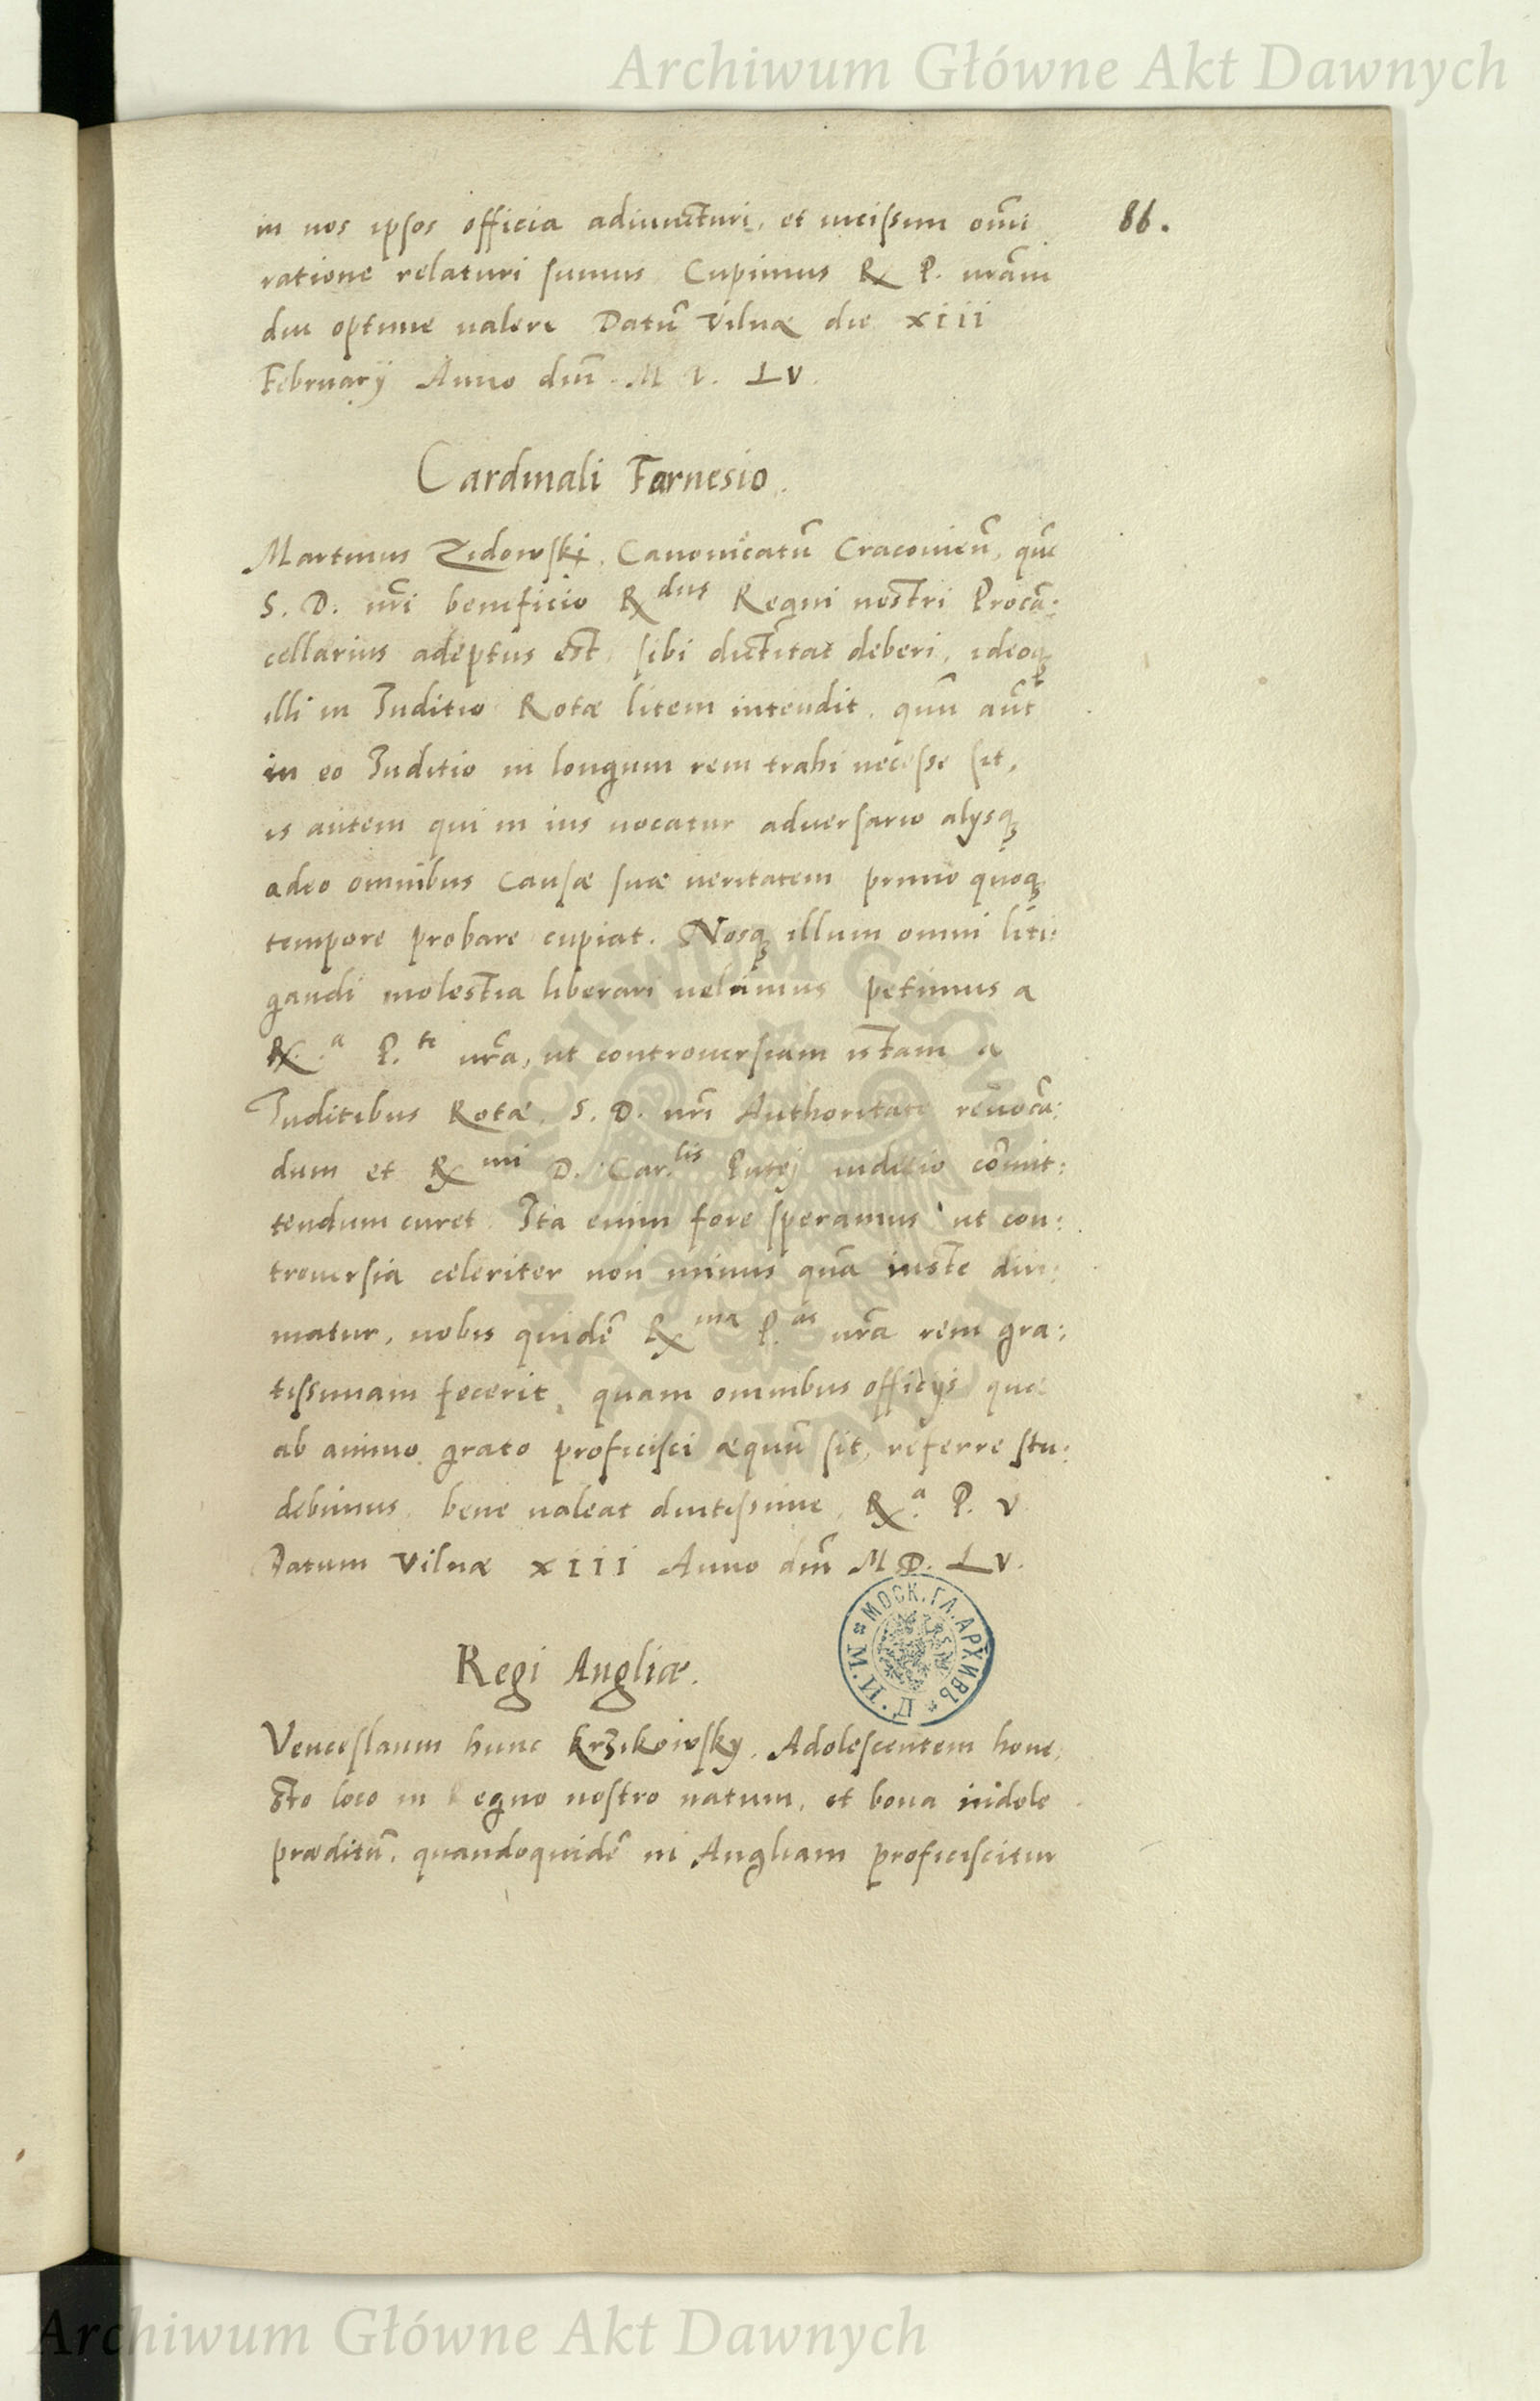 Archiwum Główne Akt Dawnych
86.
in nos ipsos officia adiuncturi, et uicissim om̃i
ratione relaturi sumus. Cupimus R P. ur̃am
diu optime ualere Datũ Vilnæ die xiii
Februarij Anno dñi M D. LV.
Cardinali Farnesio.
Martinus Zidowski, Canonicatũ Cracouieñ, quẽ
S. D. nr̃i beneficio R dus Regni nostri Procã:
cellarius adeptus est, sibi dictitat deberi, ideoq
illi in Iuditio Rotæ litem intendit, quũ aũt
in eo Iuditio in longum rem trahi necesse sit,
is autem qui in ius uocatur aduersario alijsq
adeo omnibus Causæ suæ ueritatem primo quoq
tempore probare cupiat. Nosq illum omni liti:
gandi molestia liberari uelimus petimus a
R. a P. te ur̃a, ut controuersiam istam a
Iuditibus Rotæ, S. D. nr̃i Authoritate reuocã:
dum et R mi D. Car. lis Putej iuditio cõmit:
tendum curet. Ita enim fore speramus ut con:
trouersia celeriter non minus quã iuste diri:
matur, nobis quidẽ R ma P. as ur̃a rem gra:
tissimam fecerit, quam omnibus officijs quæ
ab animo grato proficisci æquũ sit, referre stu:
debimus. bene ualeat diutissime, R. a P. V
Datum Vilnæ xiii Anno dñi M D. LV.
МОСК. ГЛ. АРХИВЪ * М. И. Д. *
Regi Angliæ.
Venceslaum hunc Krzikowsky, Adolescentem hone,
sto loco in Regno nostro natum, et bona indole
præditũ, quandoquidẽ in Angliam proficiscitur
ARCHIWUM GŁÓWNE AKT DAWNYCH
Archiwum Główne Akt Dawnych